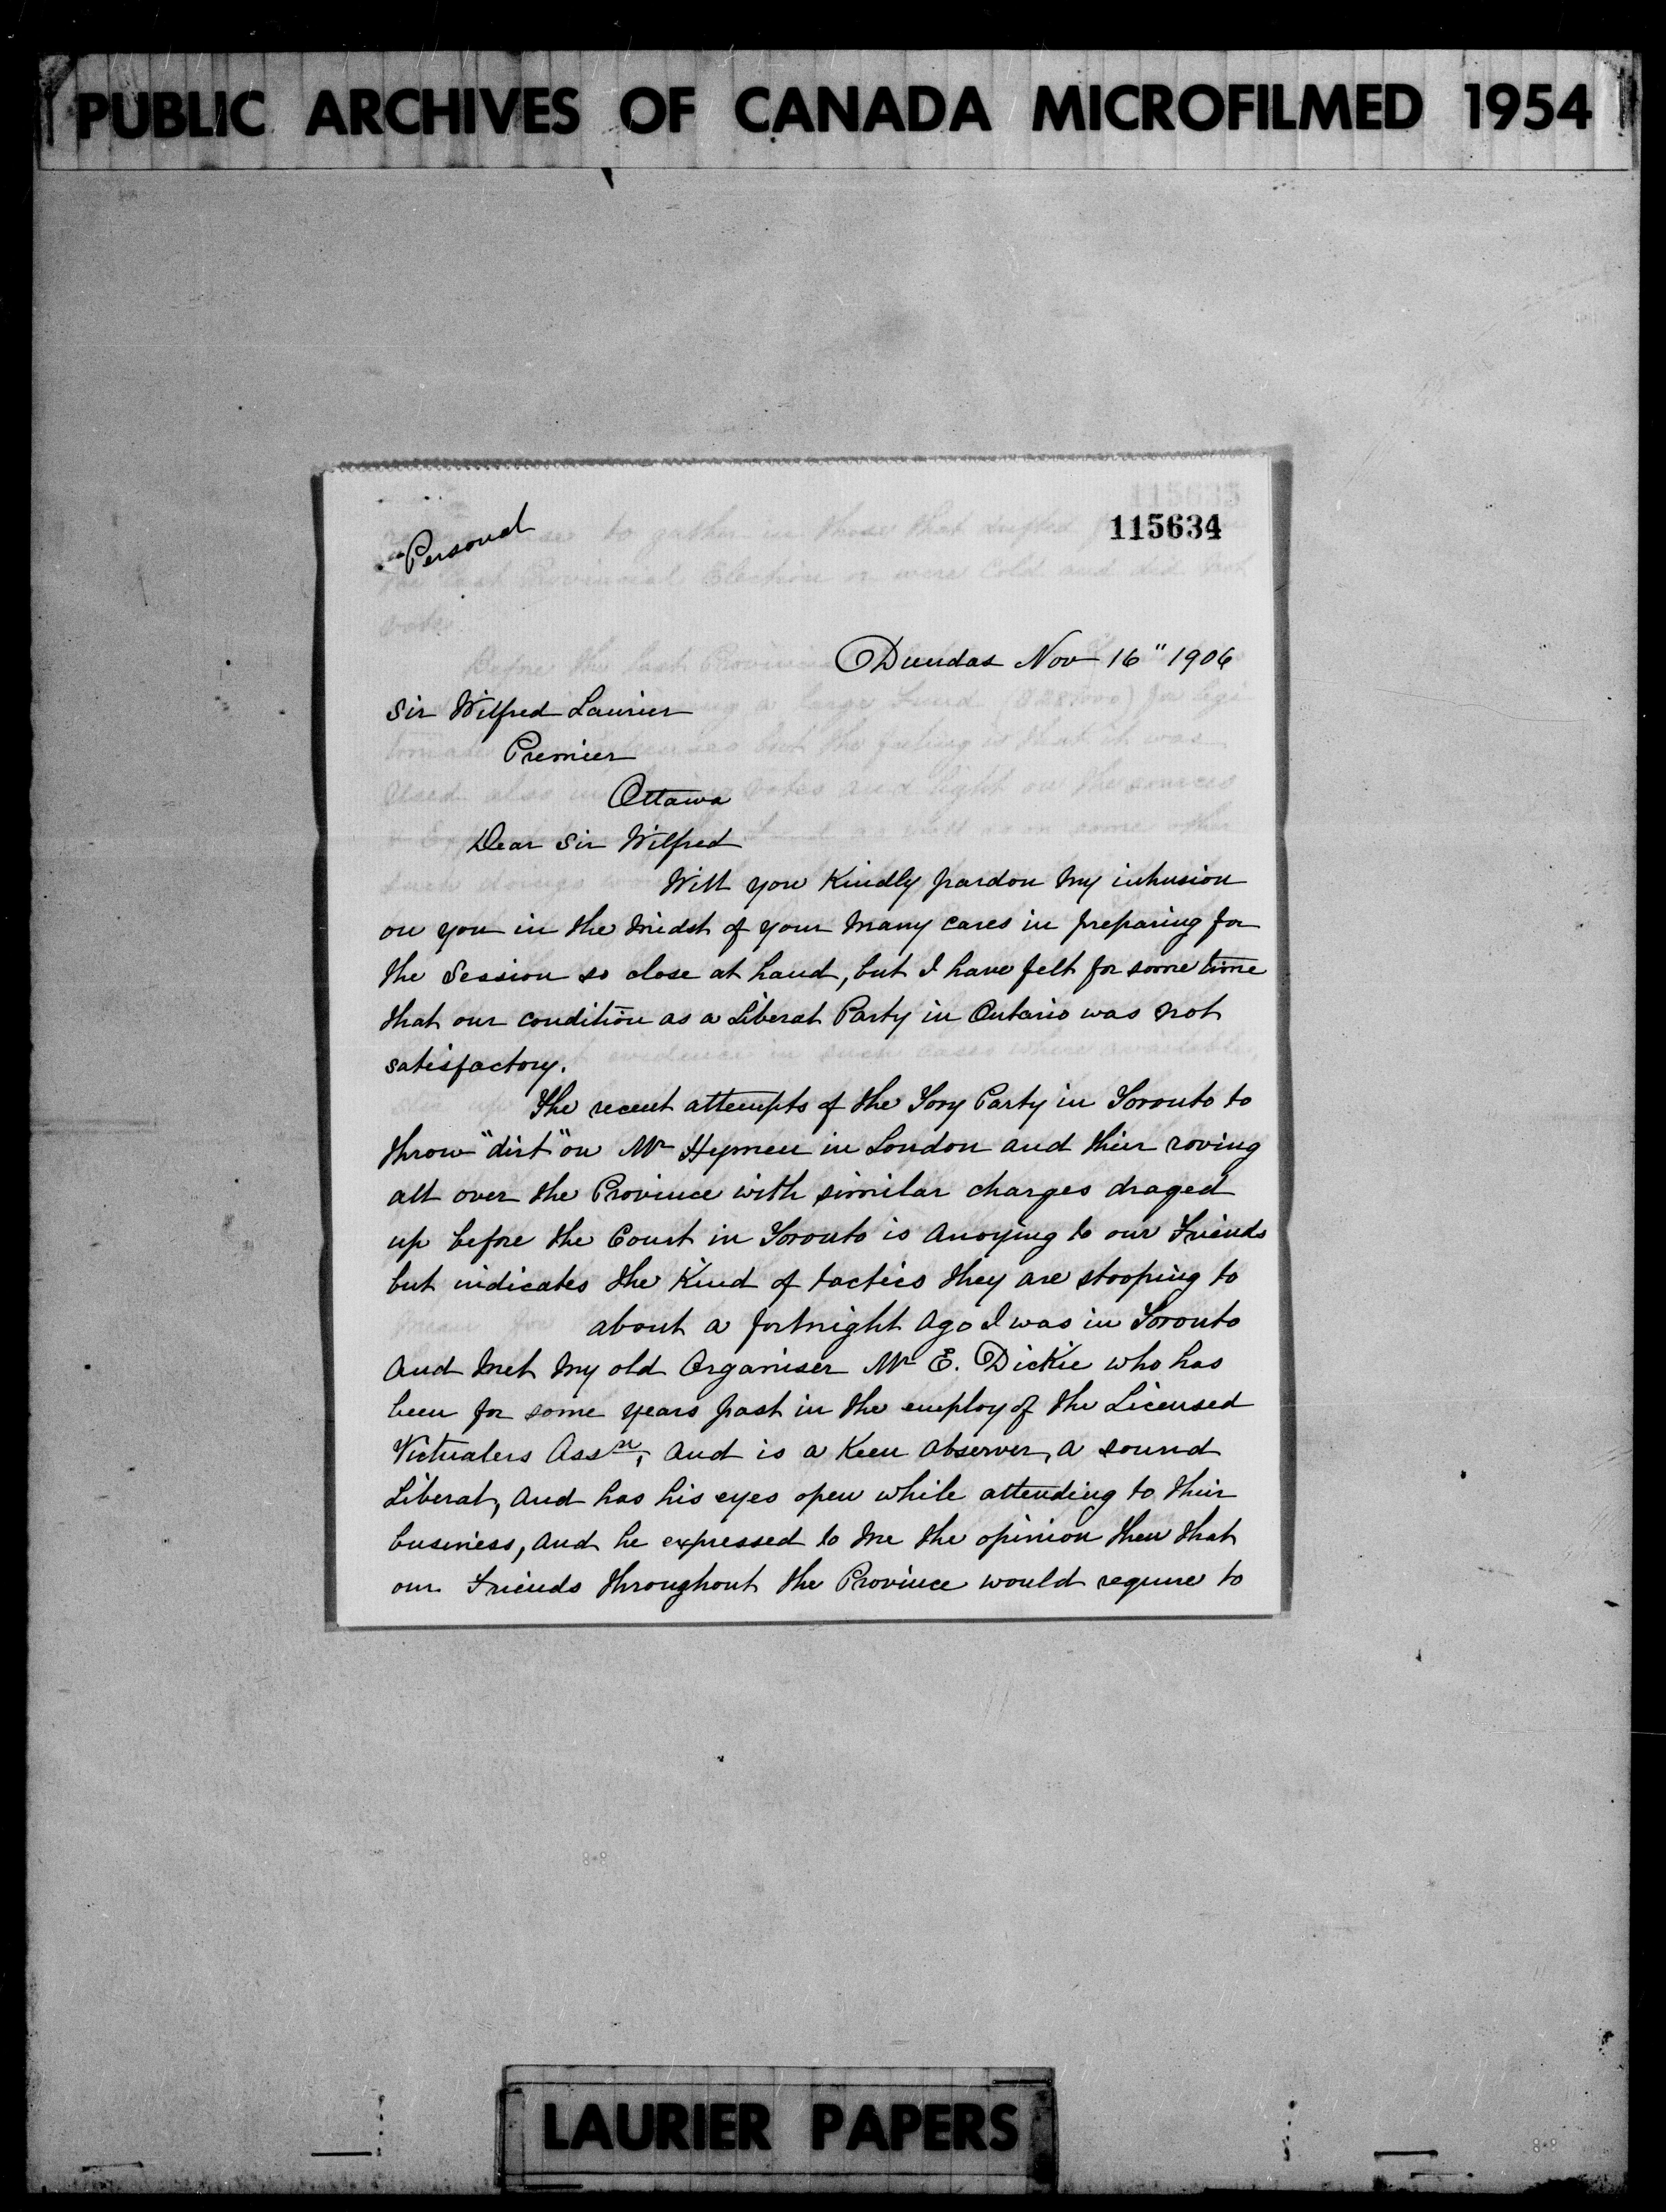 PUBLIC ARCHIVES OF CANADA MICROFILMED 1954
115634
"Personal
Dundas Nov 16" 1906
Sir Wilfred Laurier
Premier
Ottawa
Dear Sir Wilfred
Will you Kindly pardon my intrusion
on you in the midst of your many cares in preparing for
the Session so close at hand, but I have felt for some time
that our condition as a Liberal Party in Ontario was not
satisfactory.
The recent attempts of the Tory Party in Toronto to
throw "dirt" on Mr Hymen in London and thier roving
all over the Province with similar charges draged
up before the Court in Toronto is anoying to our Friends
but indicates the Kind of tactics they are stooping to
about a fortnight ago I was in Toronto
and met my old Organiser Mr E. Dickie who has
been for some years past in the employ of the Licensed
Victualers Assn, and is a Keen observer, a sound
Liberal, and has his eyes open while attending to thier
business, and he expressed to me the opinion then that
our Friends throughout the Province would require to
LAURIER PAPERS